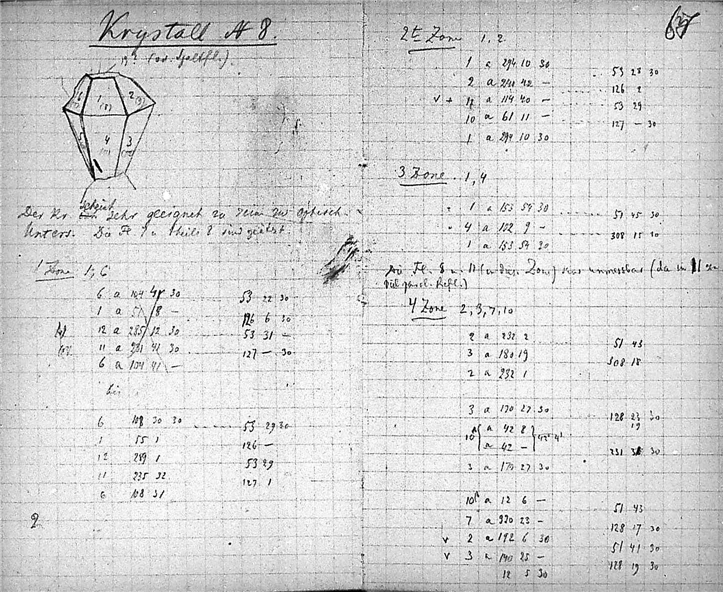 Krystall № 8.
19? (ov. Spaltfl.).
1
2
4
3
Der Kr. scheint sehr geeignet zu sein zu optisch.
Unters. Die Fl 1 u theils 8 sind geätzt
1 Zone 1,6
6 a 104 41 30
53 22 30
1 a 51 8 –
126 6 30
12 a 285 12 30
53 31 –
11 a 231 41 30
127 – 30
6 a 104 41 –
bis
6 108 30 30
53 29 30
1 55 1
126 –
12 289 1
53 29
11 235 32
127 1
6 108 31
2
67
2te Zone 1,2
1 a 294 10 30
53 28 30
2 a 240 42 –
126 2
11 a 114 40 –
53 29
10 a 61 11 –
127 – 30
1 a 294 10 30
3 Zone 1,4
1 a 153 54 30
51 45 30
4 a 102 9 –
308 15 30
1 a 153 54 30
Die Fl. 8 u. 11 (in dieser Zone) war unmessbar (da in 11 zu
viel parall. Refl.)
4 Zone 2,3,7,10
2 a 232 2
51 43
3 a 180 19
308 18
2 a 232 1
3 a 170 27 30
128 23 30
19
10 a 42 8
a 42 –
231 30
3 a 170 27 30
10 a 12 6 –
51 43
7 a 320 23 –
128 17 30
v 2 a 192 6 30
51 41 30
v 3 a 140 25 –
128 19 30
12 5 30